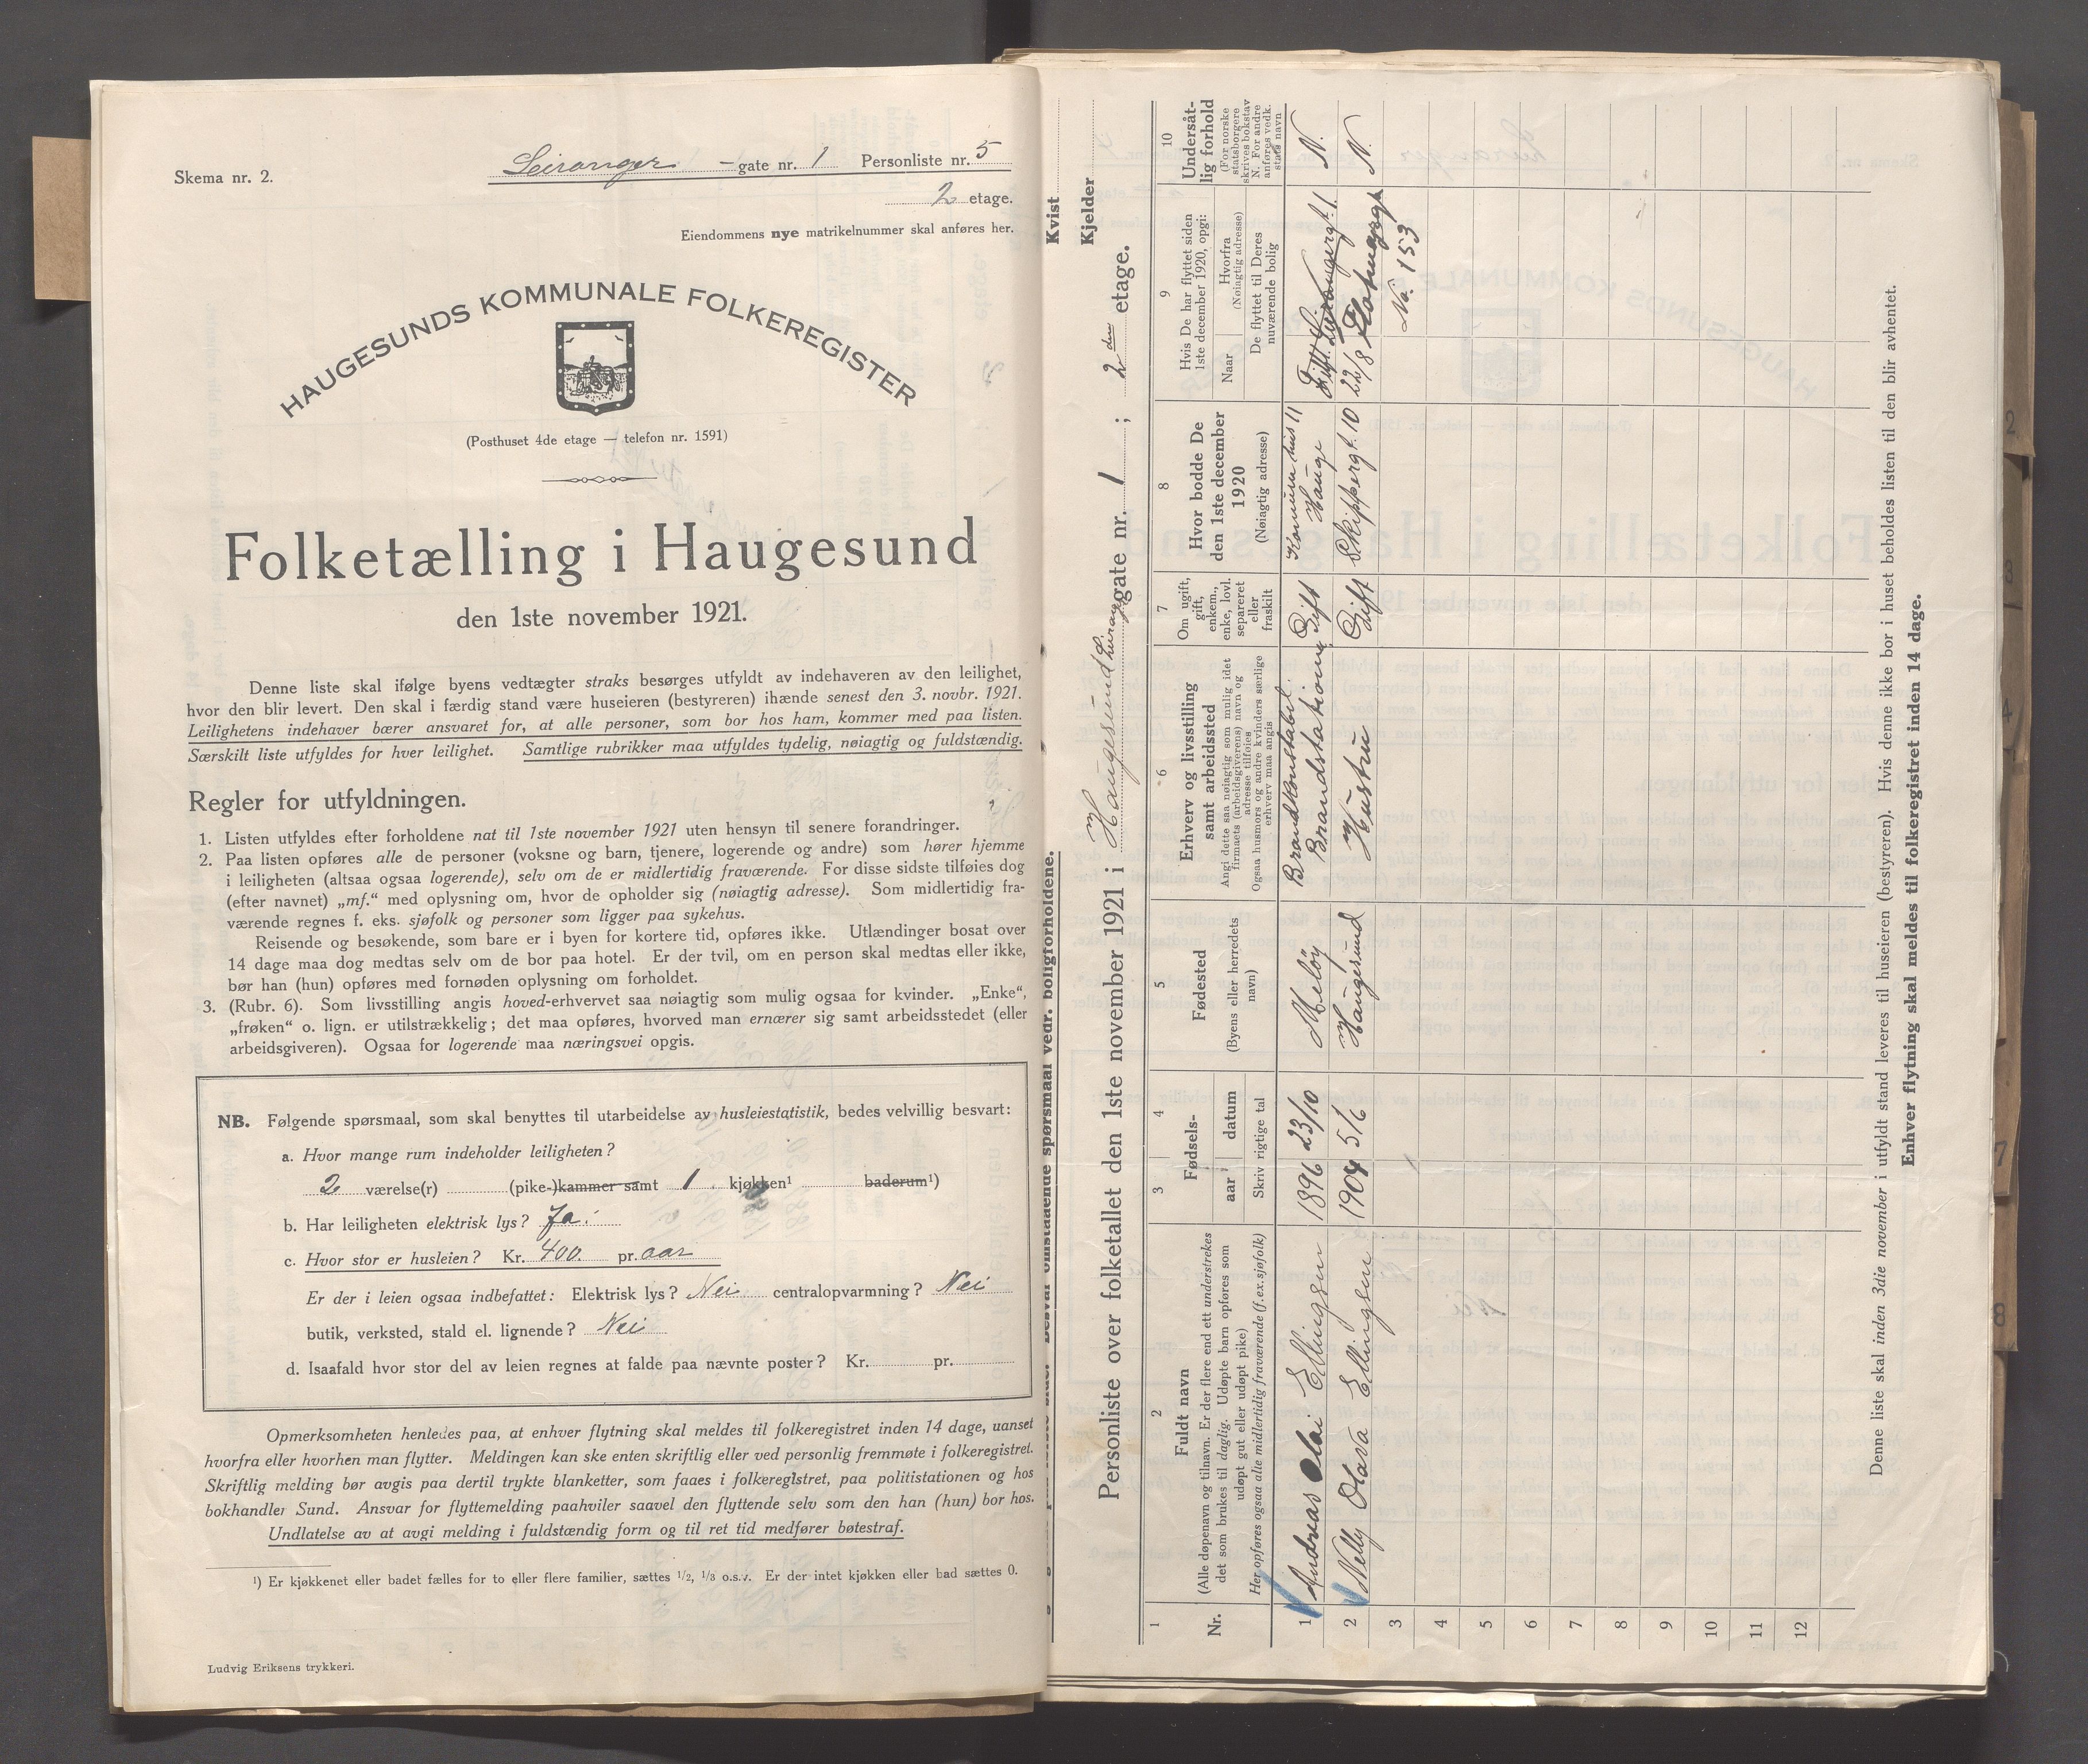 Skema nr. 2.
Leiranger - gate nr. 1 Personliste nr. 5
2 etage.
Eiendommens nye matrikelnummer skal anføres her.
HAUGESUNDS KOMMUNALE FOLKEREGISTER
(Posthuset 4de etage — telefon nr. 1591)
Folketælling i Haugesund
den 1ste november 1921.
Denne liste skal ifølge byens vedtægter straks besørges utfyldt av indehaveren av den leilighet,
hvor den blir levert. Den skal i færdig stand være huseieren (bestyreren) ihænde senest den 3. novbr. 1921.
Leilighetens indehaver bærer ansvaret for, at alle personer, som bor hos ham, kommer med paa listen.
Særskilt liste utfyldes for hver leilighet. Samtlige rubrikker maa utfyldes tydelig, nøiagtig og fuldstændig.
Regler for utfyldningen.
1. Listen utfyldes efter forholdene nat til 1ste november 1921 uten hensyn til senere forandringer.
2. Paa listen opføres alle de personer (voksne og barn, tjenere, logerende og andre) som hører hjemme
i leiligheten (altsaa ogsaa logerende), selv om de er midlertidig fraværende. For disse sidste tilføies dog
(efter navnet) „mf.“ med oplysning om, hvor de opholder sig (nøiagtig adresse). Som midlertidig fra-
værende regnes f. eks. sjøfolk og personer som ligger paa sykehus.
Reisende og besøkende, som bare er i byen for kortere tid, opføres ikke. Utlændinger bosat over
14 dage maa dog medtas selv om de bor paa hotel. Er der tvil, om en person skal medtas eller ikke,
bør han (hun) opføres med fornøden oplysning om forholdet.
3. (Rubr. 6). Som livsstilling angis hoved-erhvervet saa nøiagtig som mulig ogsaa for kvinder. „Enke“,
„frøken“ o. lign. er utilstrækkelig; det maa opføres, hvorved man ernærer sig samt arbeidsstedet (eller
arbeidsgiveren). Ogsaa for logerende maa næringsvei opgis.
NB. Følgende spørsmaal, som skal benyttes til utarbeidelse av husleiestatistik, bedes velvillig besvart:
a. Hvor mange rum indeholder leiligheten?
2 værelse(r) (pike-)kammer samt 1 kjøkken¹ baderum¹)
b. Har leiligheten elektrisk lys? Ja.
c. Hvor stor er husleien? Kr. 400 pr. aar
Er der i leien ogsaa indbefattet: Elektrisk lys? Nei centralopvarmning? Nei
butik, verksted, stald el. lignende? Nei
d. Isaafald hvor stor del av leien regnes at falde paa nævnte poster? Kr. pr.
Opmerksomheten henledes paa, at enhver flytning skal meldes til folkeregistret inden 14 dage, uanset
hvorfra eller hvorhen man flytter. Meldingen kan ske enten skriftlig eller ved personlig fremmøte i folkeregistret.
Skriftlig melding bør avgis paa dertil trykte blanketter, som faaes i folkeregistret, paa politistationen og hos
bokhandler Sund. Ansvar for flyttemelding paahviler saavel den flyttende selv som den han (hun) bor hos.
Undlatelse av at avgi melding i fuldstændig form og til ret tid medfører bøtestraf.
¹) Er kjøkkenet eller badet fælles for to eller flere familier, sættes 1/2, 1/3 o.s.v. Er der intet kjøkken eller bad sættes 0.
Ludvig Eriksens trykkeri.
Besvar omstaaende spørsmaal vedr. boligforholdene.
Kvist
Kjelder
Personliste over folketallet den 1ste november 1921 i Haugesund Leiranger gate nr. 1 ; 2den etage.
1 2 3 4 5 6 7 8 9 10
Nr.
Fuldt navn
(Alle døpenavn og tilnavn. Er der flere end ett understrekes
det som brukes til daglig. Udøpte barn opføres som
udøpt gut eller udøpt pike)
Her opføres ogsaa alle midlertidig fraværende (f.ex.sjøfolk)
Fødsels-
aar datum
Skriv rigtige tal
Fødested
(Byens eller herredets
navn)
Erhverv og livsstilling
samt arbeidssted
Angi dette saa nøiagtig som mulig idet
firmaets (arbeidsgiverens) navn og
adresse tilføies
Ogsaa husmors og andre kvinders særlige
erhverv maa angis
Om ugift,
gift,
enkem.,
enke, lovl.
separeret
eller
fraskilt
Hvor bodde De
den 1ste december
1920
(Nøiagtig adresse)
Hvis De har flyttet siden
1ste december 1920, opgi:
Naar
Hvorfra
(Nøiagtig adresse)
De flyttet til Deres
nuværende bolig
Undersåt-
lig forhold
(For norske
statsborgere
skrives bokstav
N. For andre
anføres vedk.
stats navn
1 Andreas Olai Ellingsen 1896 23/10 Meløy Brandkonstabel. Brandstationen Gift Komune hus 11 Hauge N.
2 Nelly Olava Ellingsen 1904 5/6 Haugesund Hustru Gift Skippergt. 10 22/8 No. 153 N.
3
4
5
6
7
8
9
10
11
12
Denne liste skal inden 3die november i utfyldt stand leveres til huseieren (bestyreren). Hvis denne ikke bor i huset beholdes listen til den blir avhentet.
Enhver flytning skal meldes til folkeregistret inden 14 dage.